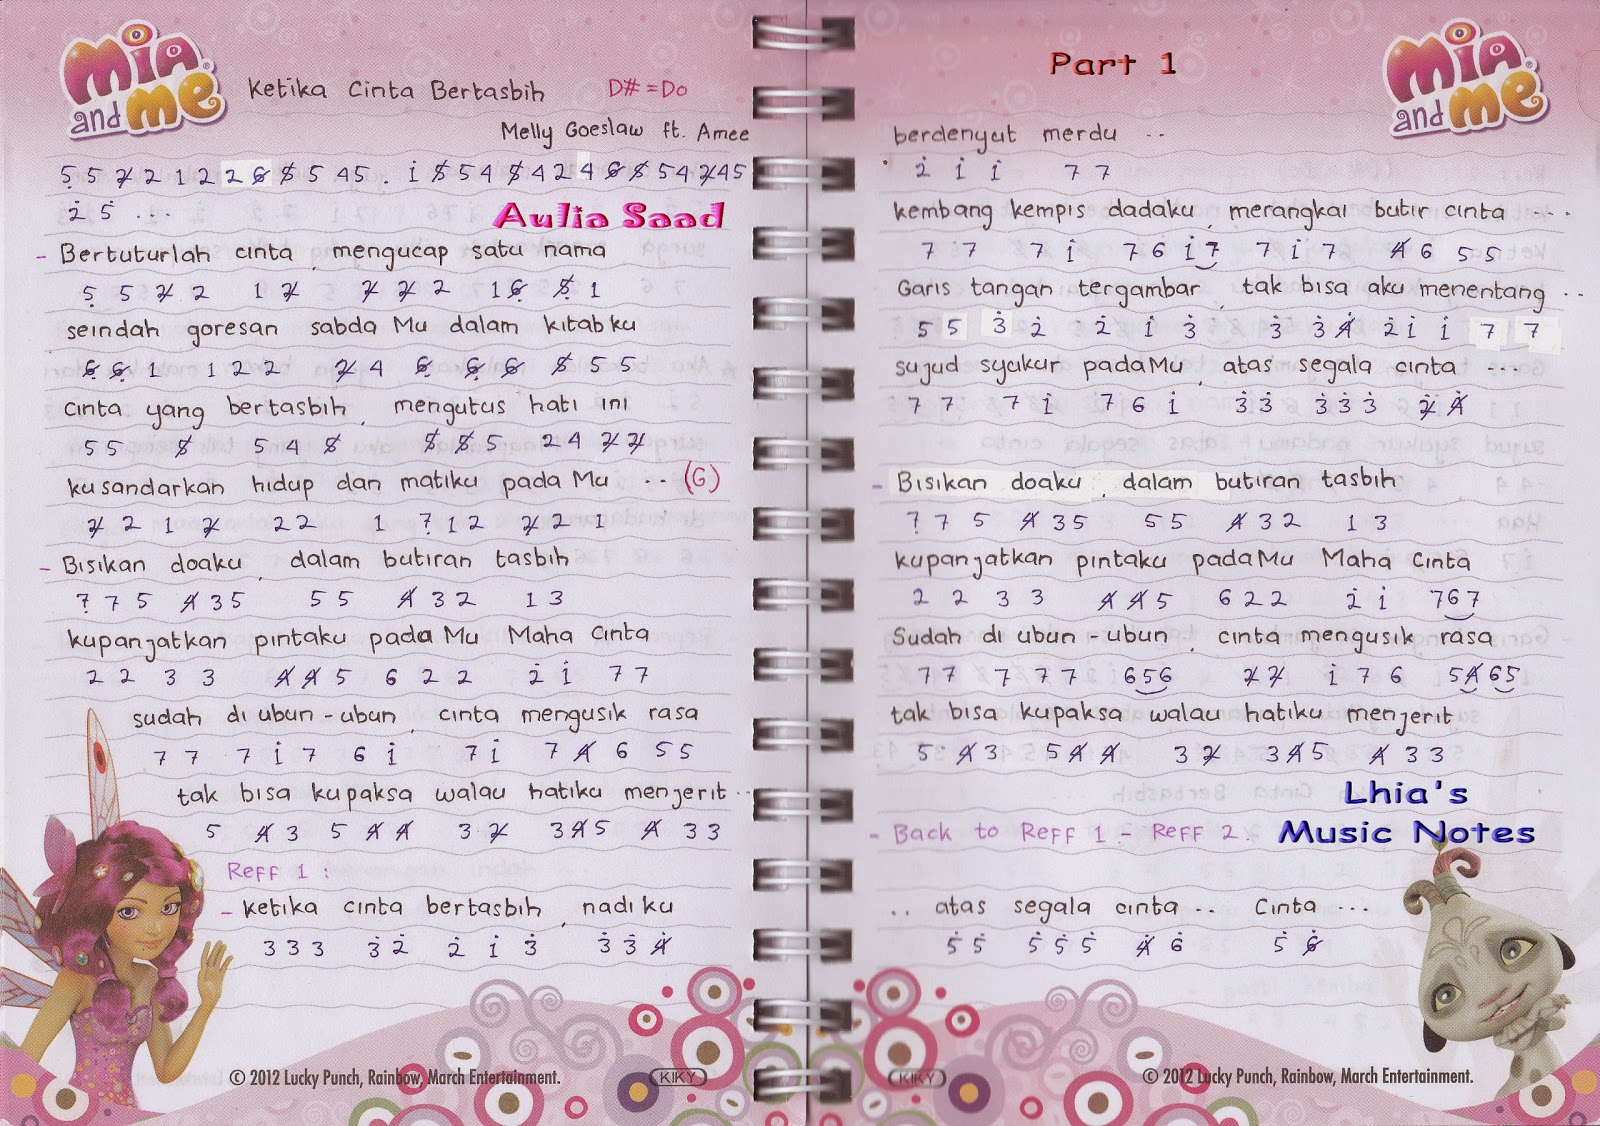 Mia and me
Ketika Cinta Bertasbih D# = Do
Melly Goeslaw ft. Amee
5̣ 5 2̸ 2 1 2 2 2 6̸ 5̸ 5 4 5 . i 5̸ 5 4 5̸ 4 2 4 6̸ 5̸ 5 4 2̸ 4 5
2̇ 5̇ ...
Aulia Saad
- Bertuturlah cinta, mengucap satu nama
5̣ 5 2̸ 2 1 2̸ 2̸ 2̸ 2 1 6̸̣ 5̸̣ 1
seindah goresan sabda Mu dalam kitabku
6̸̣ 6̸̣ 1 1 2 2 2̸ 4 6̸̣ 6̸̣ 6̸̣ 5̸ 5 5
cinta yang bertasbih, mengutus hati ini
5 5 5̸ 5 4 5̸ 5̸ 5̸ 5 2 4 2̸ 2̸
kusandarkan hidup dan matiku pada Mu .. (G)
2̸ 2 1 2̸ 2 2 1 7̣ 1 2 2̸ 2 1
- Bisikan doaku, dalam butiran tasbih
7̣ 7 5 4̸ 3 5 5 5 4̸ 3 2 1 3
kupanjatkan pintaku pada Mu Maha Cinta
2 2 3 3 4̸ 4̸ 5 6 2 2 2̇ i 7 7
sudah di ubun-ubun, cinta mengusik rasa
7 7 7 i 7 6 i 7 i 7 4̸ 6 5 5
tak bisa kupaksa walau hatiku menjerit ..
5 4̸ 3 5 4̸ 4̸ 3 2̸ 3 4̸ 5 4̸ 3 3
Reff 1 :
- ketika cinta bertasbih, nadiku
3 3 3 3̇ 2̇ 2̇ i 3̇ 3̇ 3̇ 4̸̇
© 2012 Lucky Punch, Rainbow, March Entertainment.
KIKY
Part 1
Mia and me
berdenyut merdu ..
2̇ i i 7 7
kembang kempis dadaku, merangkai butir cinta ....
7 7 7 i 7 6 i 7 7 i 7 4̸ 6 5 5
Garis tangan tergambar, tak bisa aku menentang ..
5 5 3̇ 2̇ 2̇ i 3̇ 3̇ 3̇ 4̸̇ 2̇ i i 7 7
sujud syukur padaMu, atas segala cinta ...
7 7 7 i 7 6 i 3̇ 3̇ 3̇ 3̇ 3̇ 2̸̇ 4̸̇
- Bisikan doaku, dalam butiran tasbih
7̣ 7 5 4̸ 3 5 5 5 4̸ 3 2 1 3
kupanjatkan pintaku padaMu Maha Cinta
2 2 3 3 4̸ 4̸ 5 6 2 2 2̇ i 7 6 7
Sudah di ubun-ubun, cinta mengusik rasa
7 7 7 7 7 6 5 6 2̸ 2̸ i 7 6 5 4̸ 6 5
tak bisa kupaksa walau hatiku menjerit
5 4̸ 3 5 4̸ 4̸ 3 2̸ 3 4̸ 5 4̸ 3 3
Lhia's
- Back to Reff 1 - Reff 2. Music Notes
.. atas segala cinta .. Cinta ...
5̇ 5̇ 5̇ 5̇ 5̇ 4̸̇ 6̇ 5̇ 6̸̇
KIKY
© 2012 Lucky Punch, Rainbow, March Entertainment.